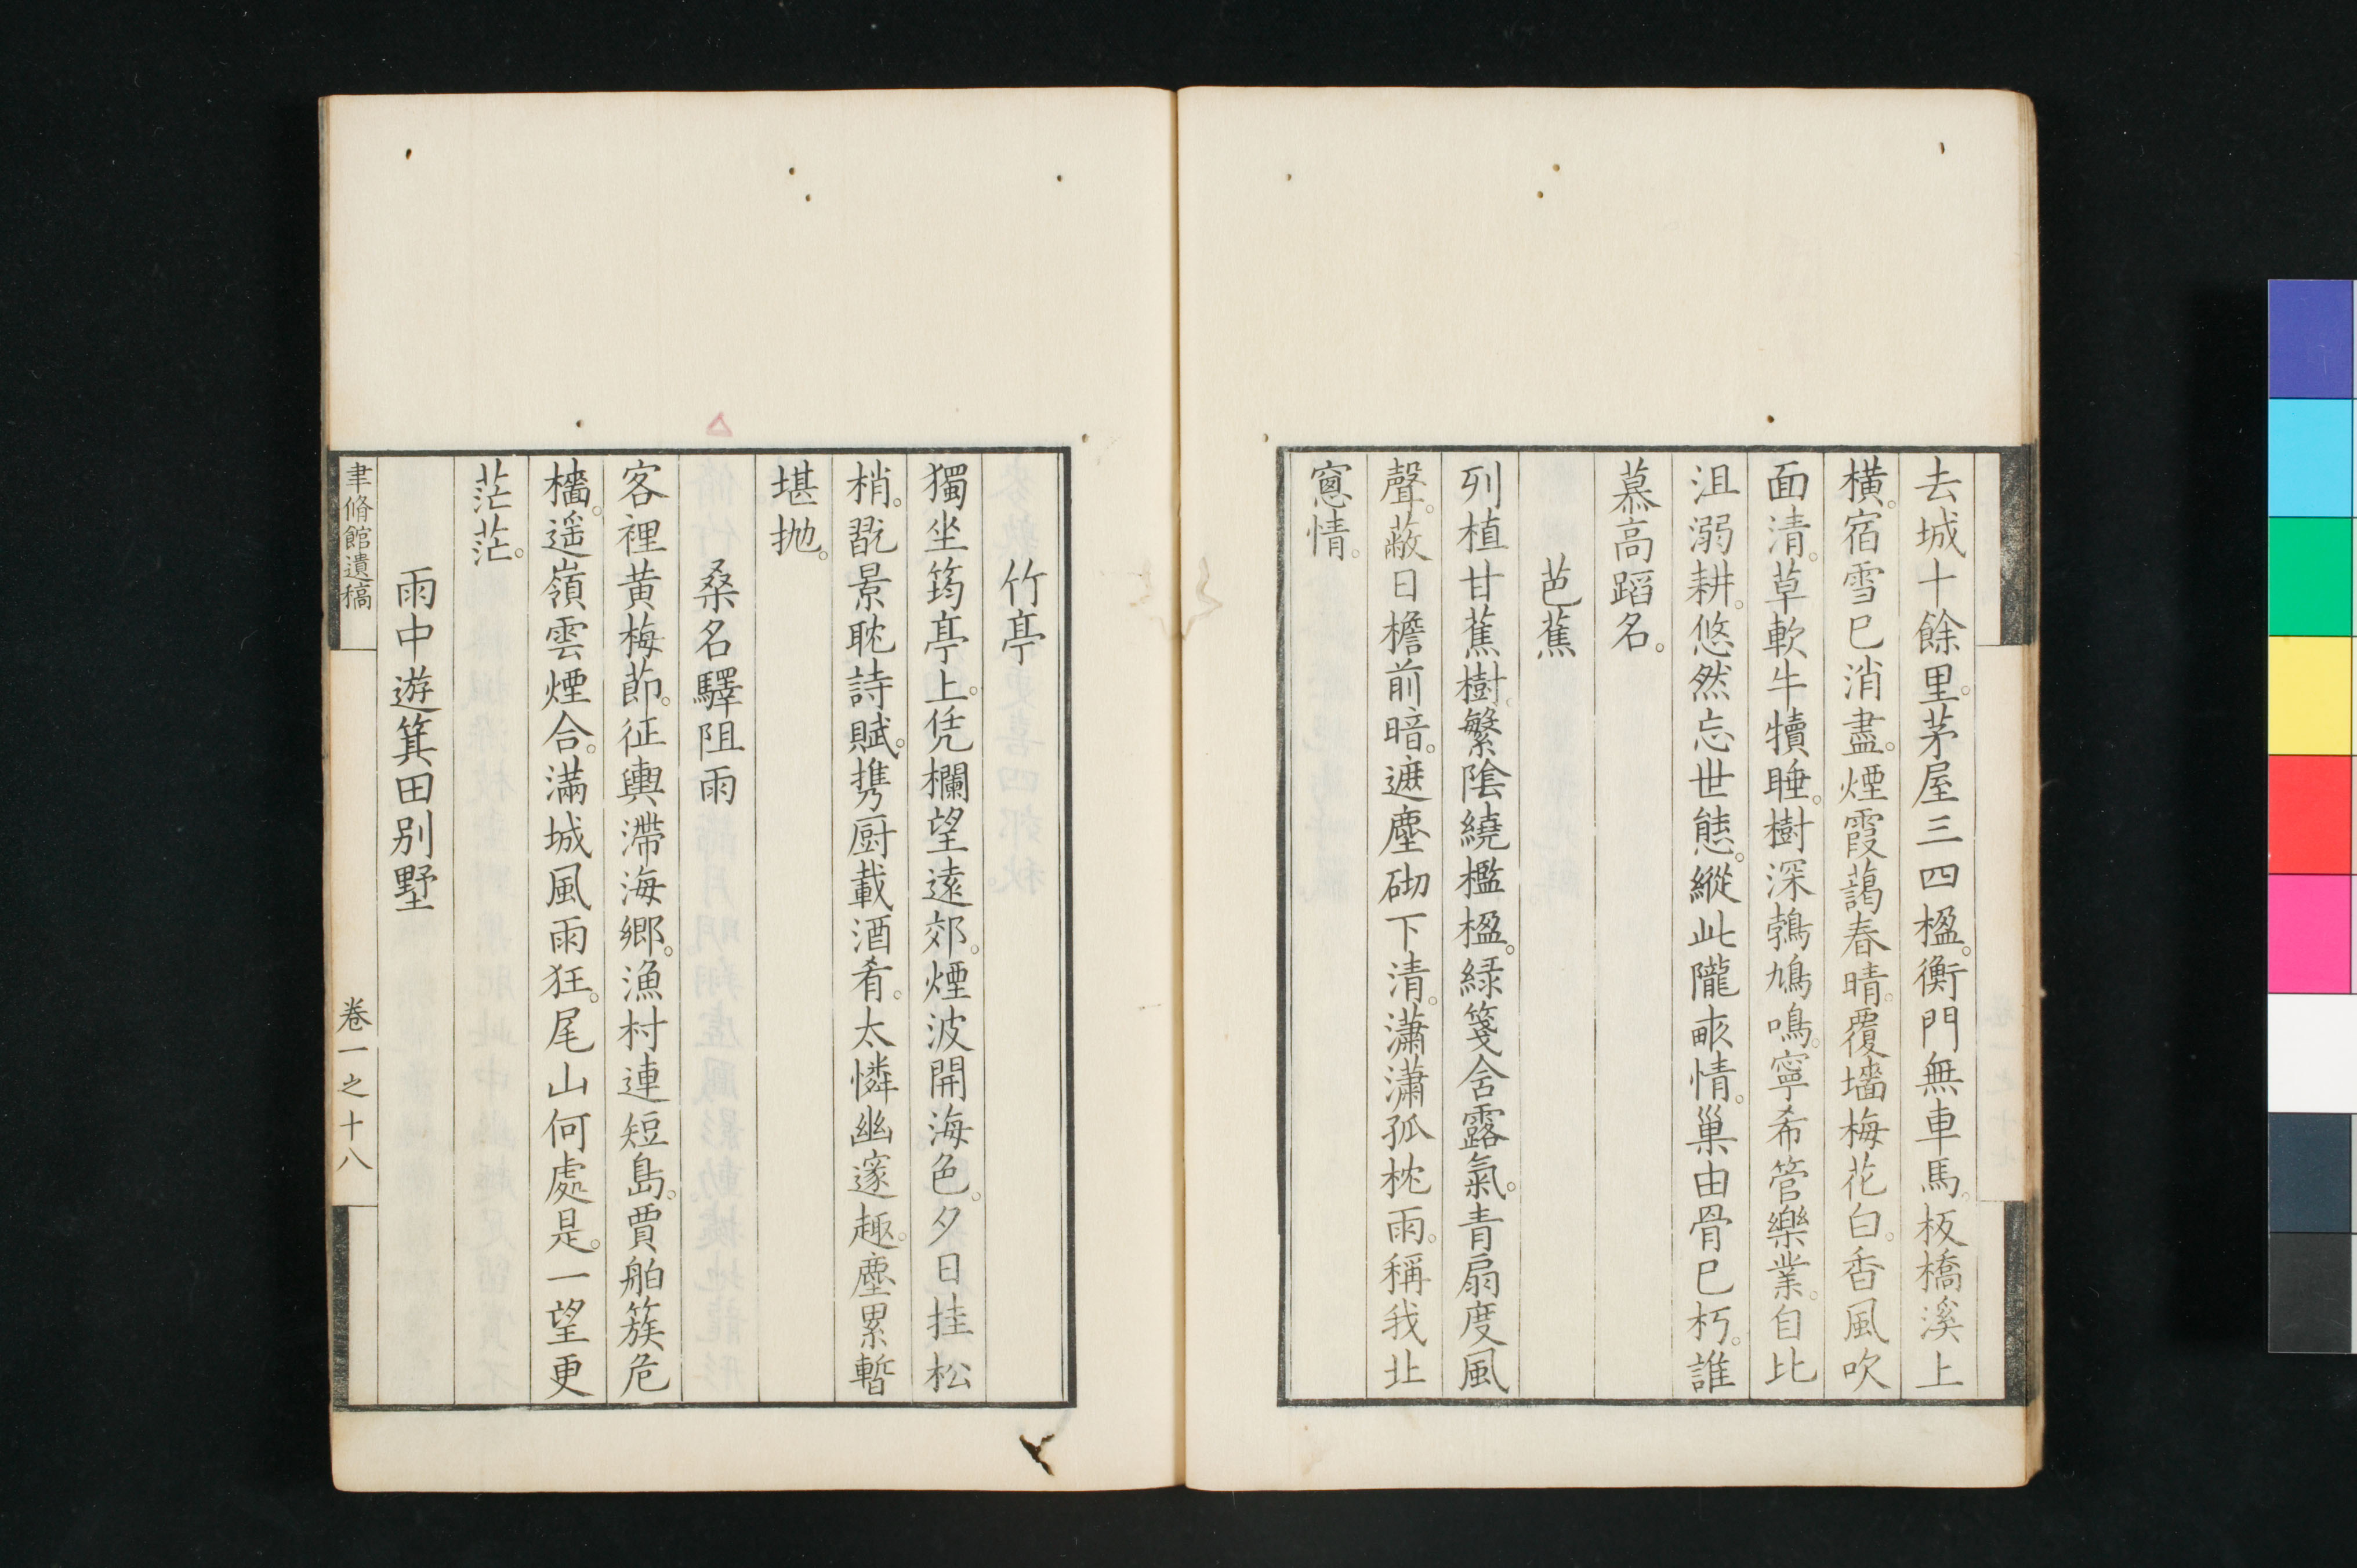 去城十餘里。茅屋三四楹。衡門無車馬。板橋溪上
橫。宿雪已消盡。煙霞藹春晴。覆墻梅花白。香風吹
面清。草軟牛犢睡。樹深鵓鳩鳴。寧希管樂業。自比
沮溺耕。悠然忘世態。縱此隴畝情。巢由骨已朽。誰
慕高蹈名。
芭蕉
列植甘蕉樹。繁陰繞檻楹。緑箋含露氣。青扇度風
聲。蔽日檐前暗。遮塵砌下清。瀟瀟孤枕雨。稱我北
窻情。
竹亭
獨坐筠亭上。凭欄望遠郊。煙波開海色。夕日挂松
梢。翫景耽詩賦。携厨載酒肴。太憐幽邃趣。塵累暫
堪抛。
桑名驛阻雨
客裡黄梅節。征輿滯海鄉。漁村連短島。賈舶簇危
檣。遥嶺雲煙合。滿城風雨狂。尾山何處是。一望更
茫茫。
雨中遊箕田别墅
聿脩館遺稿
卷一之十八